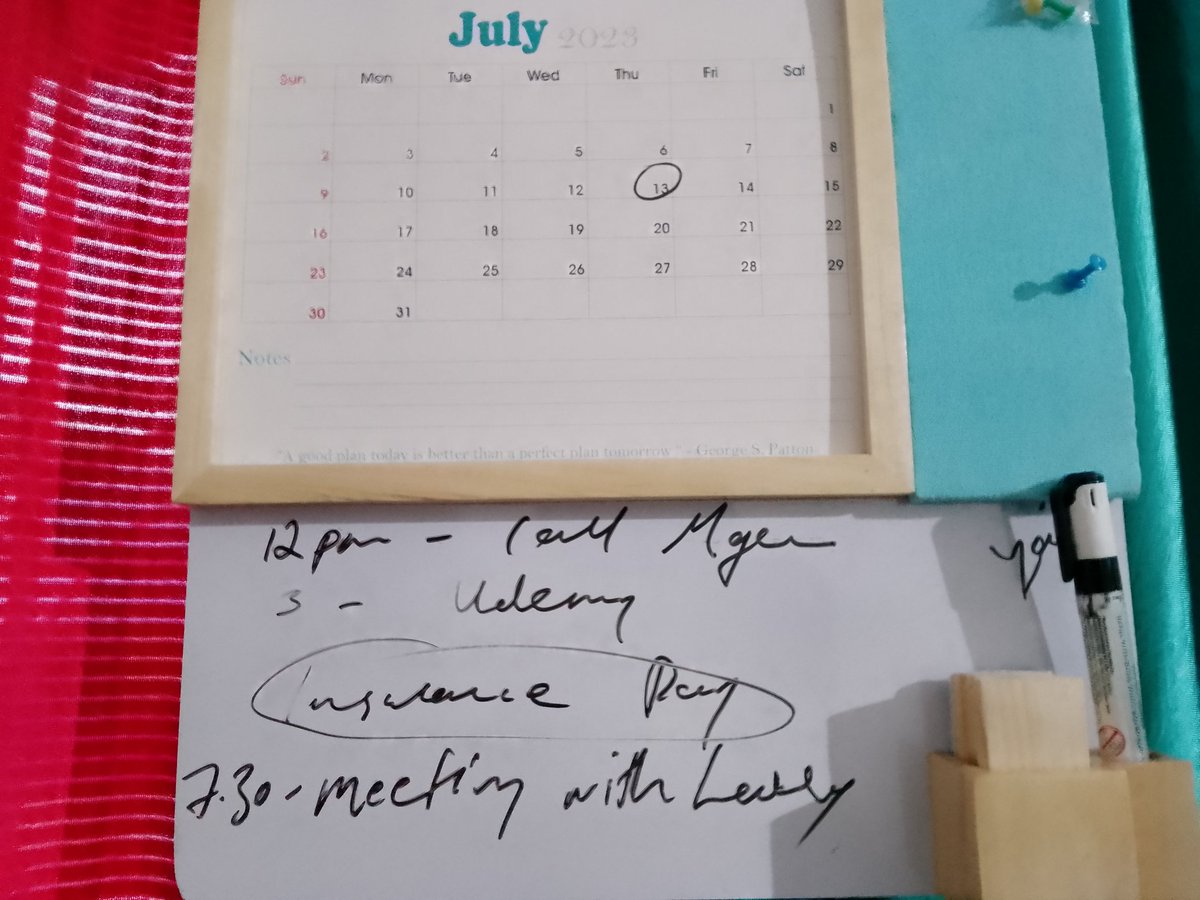 July 2023
Sun Mon Tue Wed Thu Fri Sat
1
2 3 4 5 6 7 8
9 10 11 12 13 14 15
16 17 18 19 20 21 22
23 24 25 26 27 28 29
30 31
Notes
"A good plan today is better than a perfect plan tomorrow." - George S. Patton
12 pm - Call
3 - Udemy
Insurance Pay
7.30 - meeting with